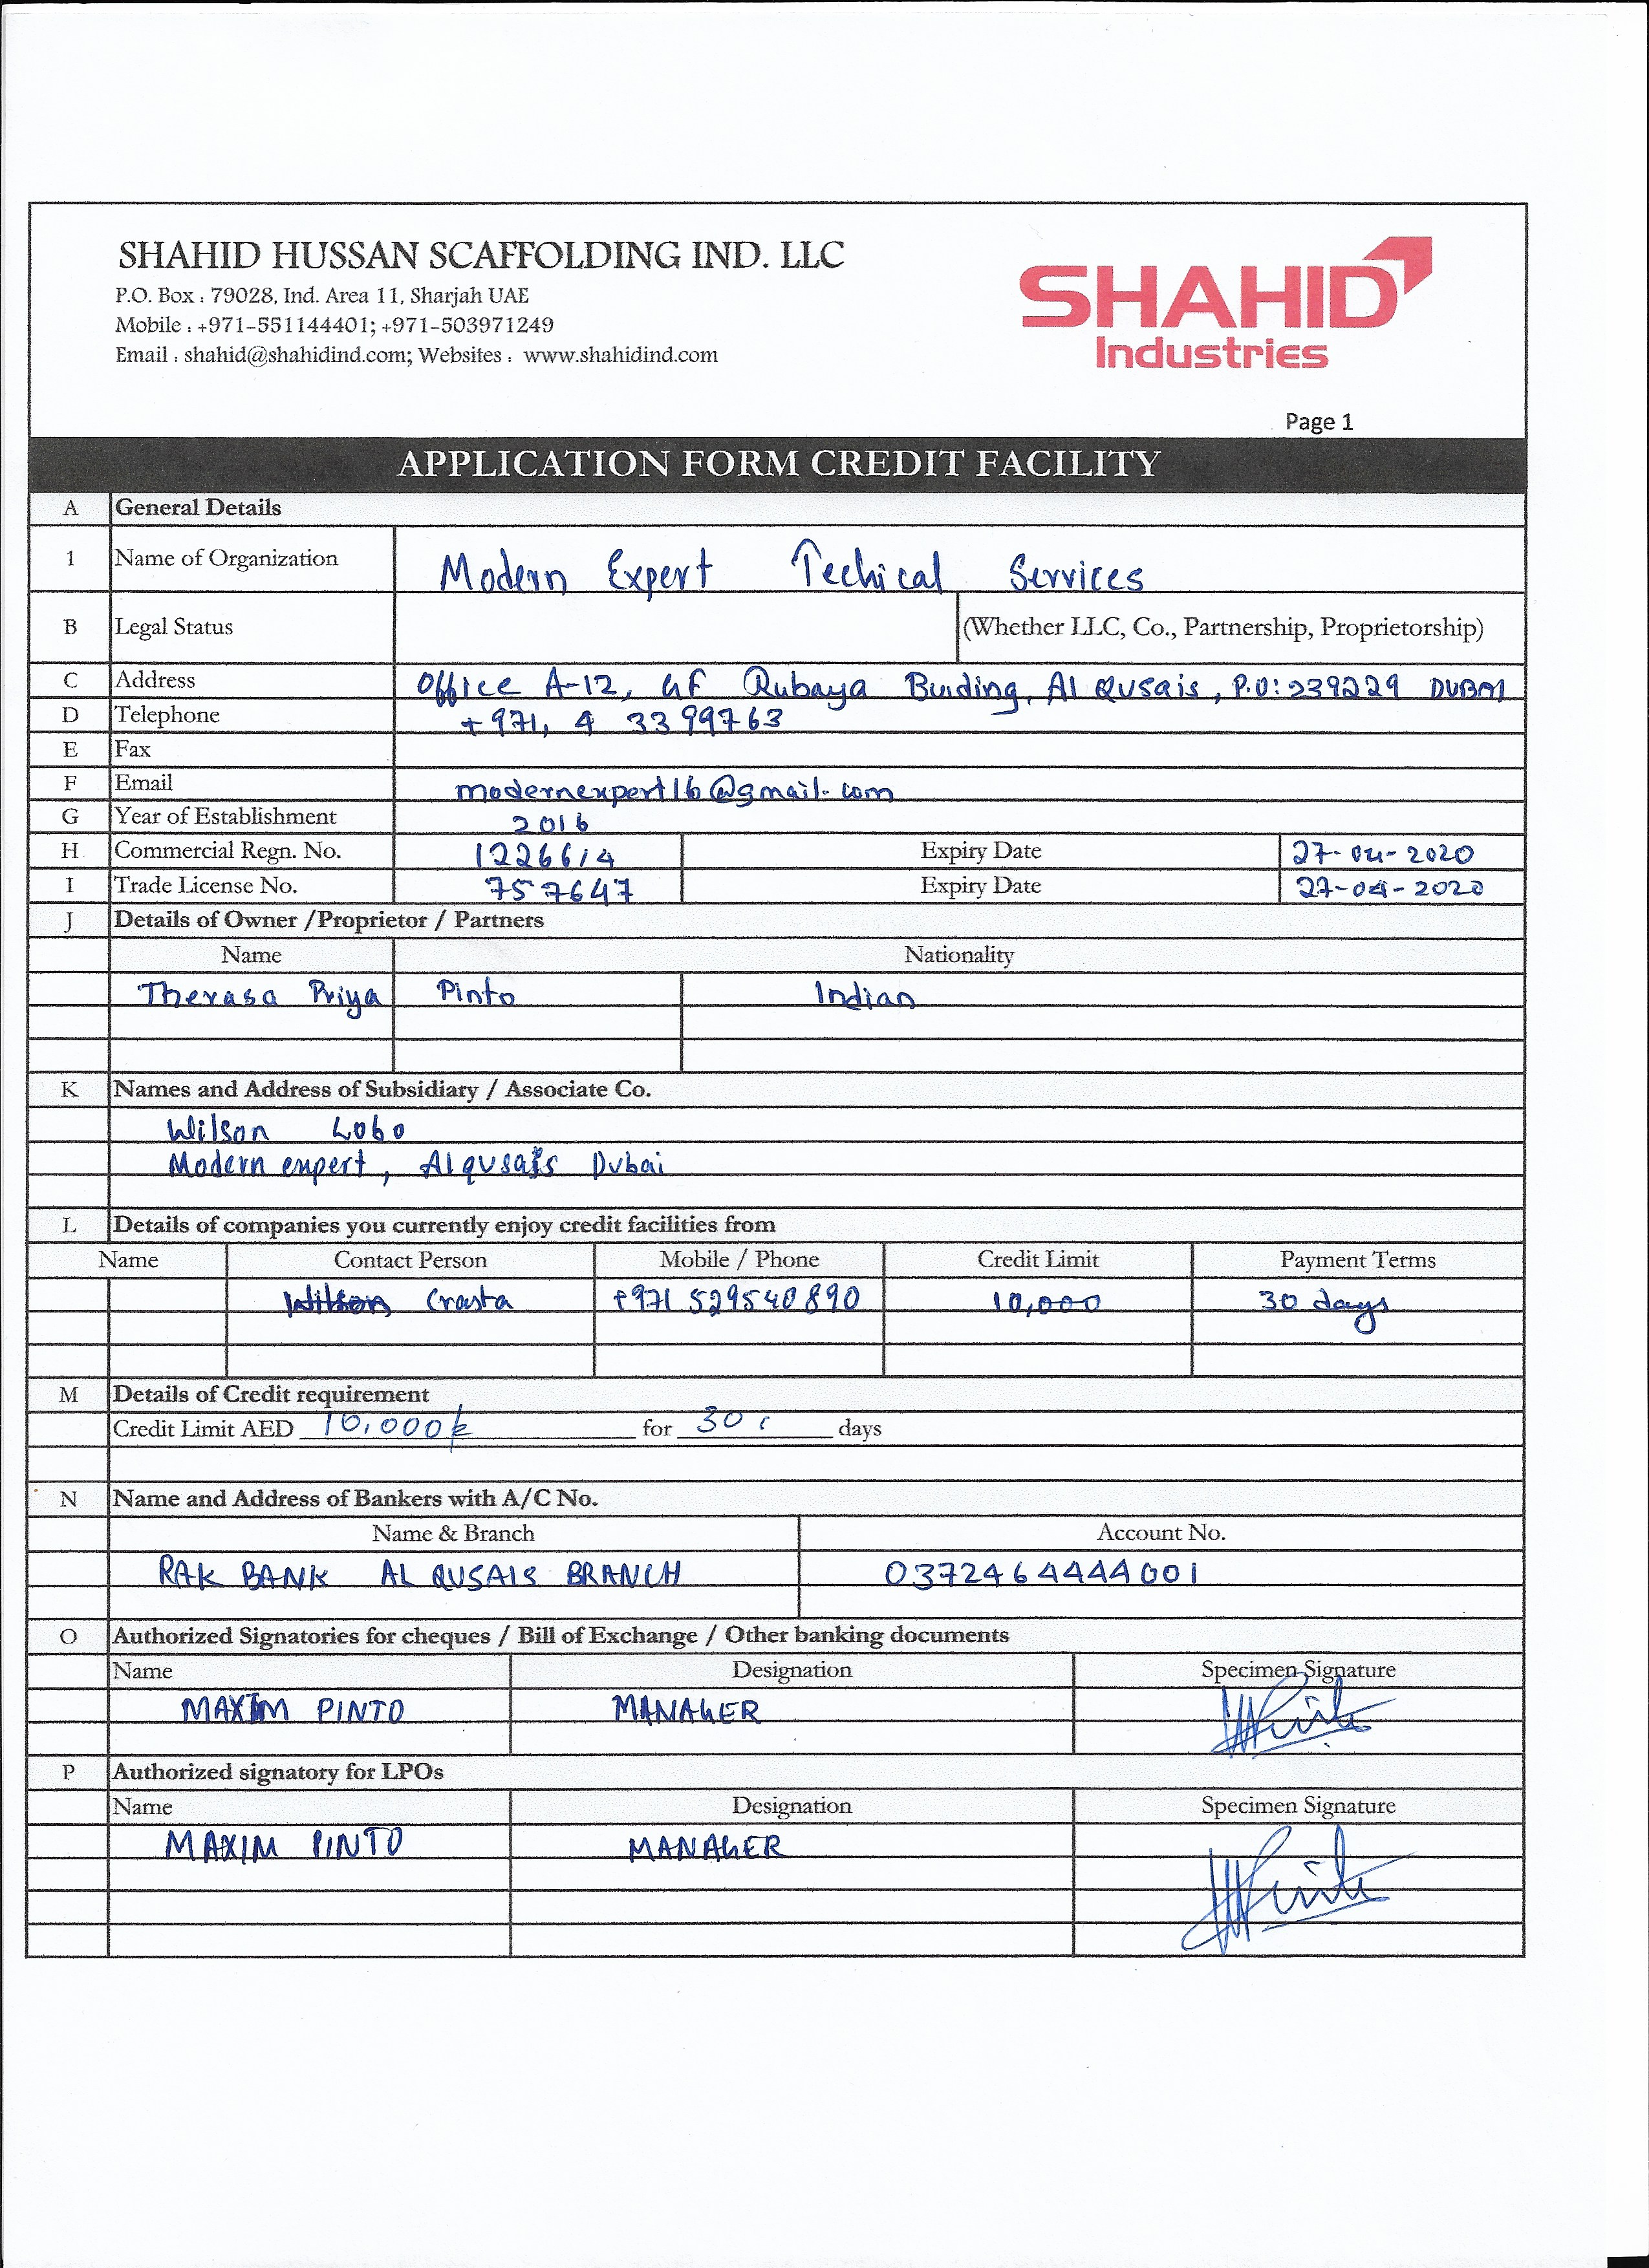 SHAHID HUSSAN SCAFFOLDING IND. LLC
P.O. Box : 79028, Ind. Area 11, Sharjah UAE
Mobile : +971-551144401; +971-503971249
Email : shahid@shahidind.com; Websites : www.shahidind.com
SHAHID
Industries
Page 1
APPLICATION FORM CREDIT FACILITY
A General Details
1 Name of Organization Modern Expert Techical Services
B Legal Status (Whether LLC, Co., Partnership, Proprietorship)
C Address Office A-12, GF Qubaya Buiding, Al Qusais, P.O:239229 DUBAI
D Telephone +971, 4 3399763
E Fax
F Email modernexpert16@gmail.com
G Year of Establishment 2016
H Commercial Regn. No. 1226614 Expiry Date 27-04-2020
I Trade License No. 757647 Expiry Date 27-04-2020
J Details of Owner /Proprietor / Partners
Name Nationality
Therasa Priya Pinto Indian
K Names and Address of Subsidiary / Associate Co.
Wilson Lobo
Modern expert, Alqusais Dubai
L Details of companies you currently enjoy credit facilities from
Name Contact Person Mobile / Phone Credit Limit Payment Terms
Wilson Crasta +971 529540890 10,000 30 days
M Details of Credit requirement
Credit Limit AED 10,000 for 30 days
N Name and Address of Bankers with A/C No.
Name & Branch Account No.
RAK BANK AL QUSAIS BRANCH 0372464444001
O Authorized Signatories for cheques / Bill of Exchange / Other banking documents
Name Designation Specimen Signature
MAXIM PINTO MANAGER
P Authorized signatory for LPOs
Name Designation Specimen Signature
MAXIM PINTO MANAGER